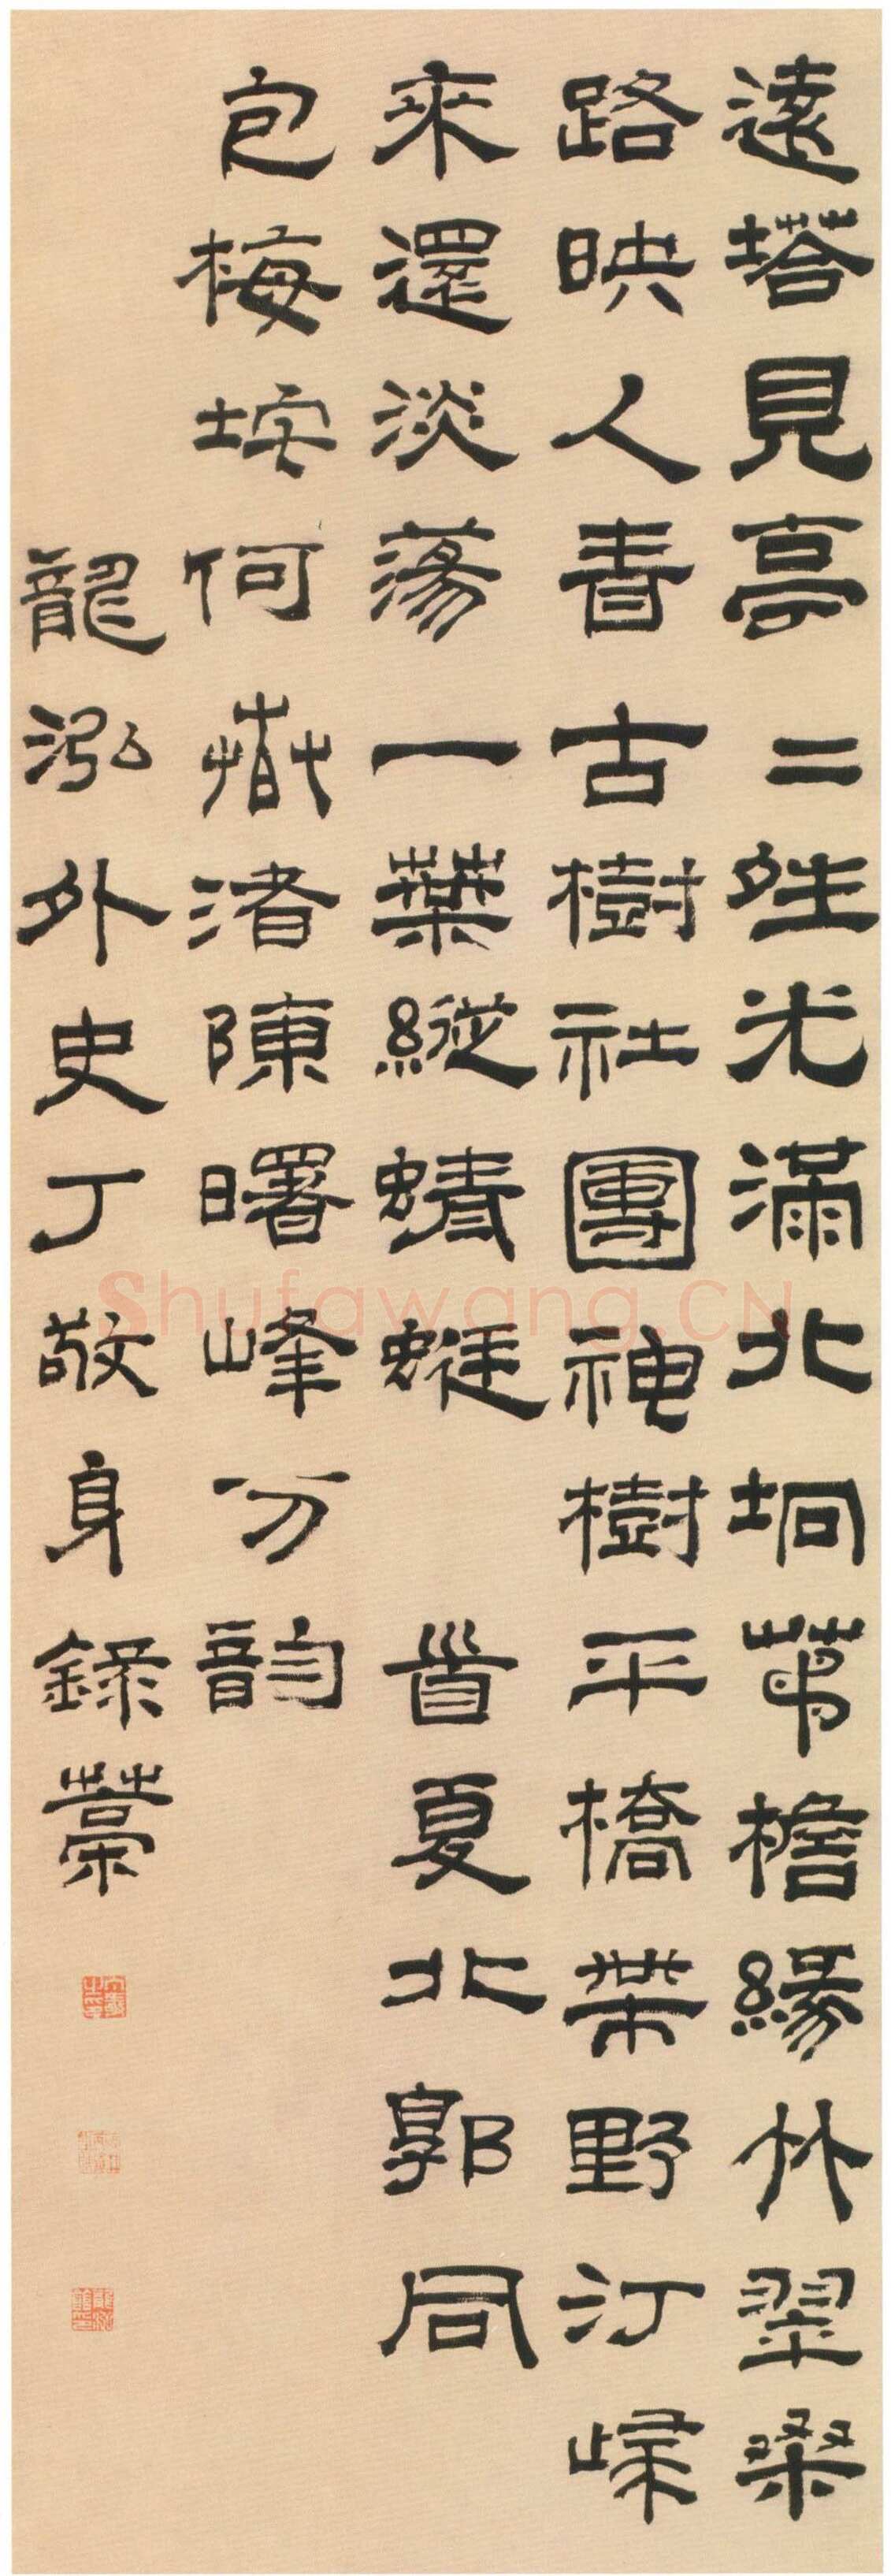 遠塔見亭二夝光滿北坰檐緣竹翠桑
路映人青古樹社團神樹平橋帶野汀歸
來還淡蕩一葉縱蜻蜓 首夏北郭同
包梅垞何春渚陳曙峰分韵
龍泓外史丁敬身錄藁
Shufawang.CN